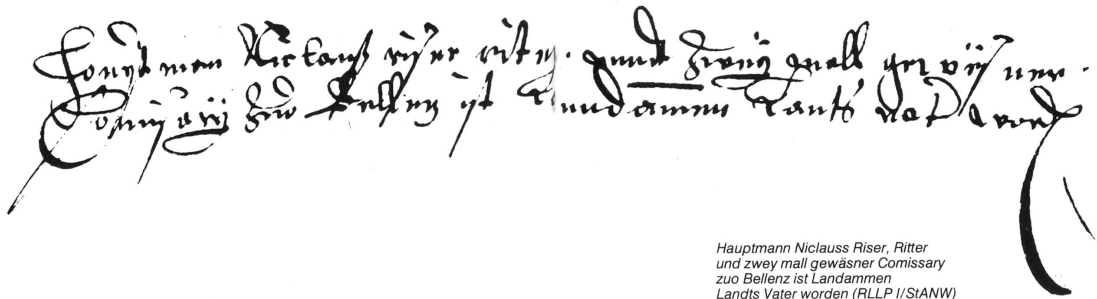 Houptman Niclauß riser riter. unnd zweÿ mall gewäsner.
Comisarÿ zuo Bellentz ist Lanndamen Lants vatter word
Hauptmann Niclauss Riser, Ritter
und zwey mall gewäsner Comissary
zuo Bellenz ist Landammen
Landts Vater worden (RLLP I/StANW)